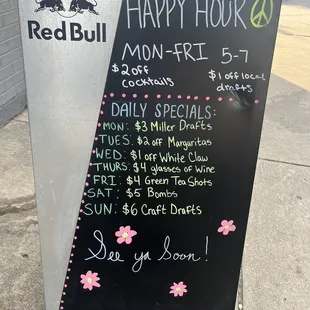 Red Bull
HAPPY HOUR
MON-FRI 5-7
$2 off
cocktails
$1 off local
drafts
DAILY SPECIALS:
MON: $3 Miller Drafts
TUES: $2 off Margaritas
WED: $1 off White Claw
THURS: $4 glasses of Wine
FRI: $4 Green Tea Shots
SAT: $5 Bombs
SUN: $6 Craft Drafts
See ya Soon!